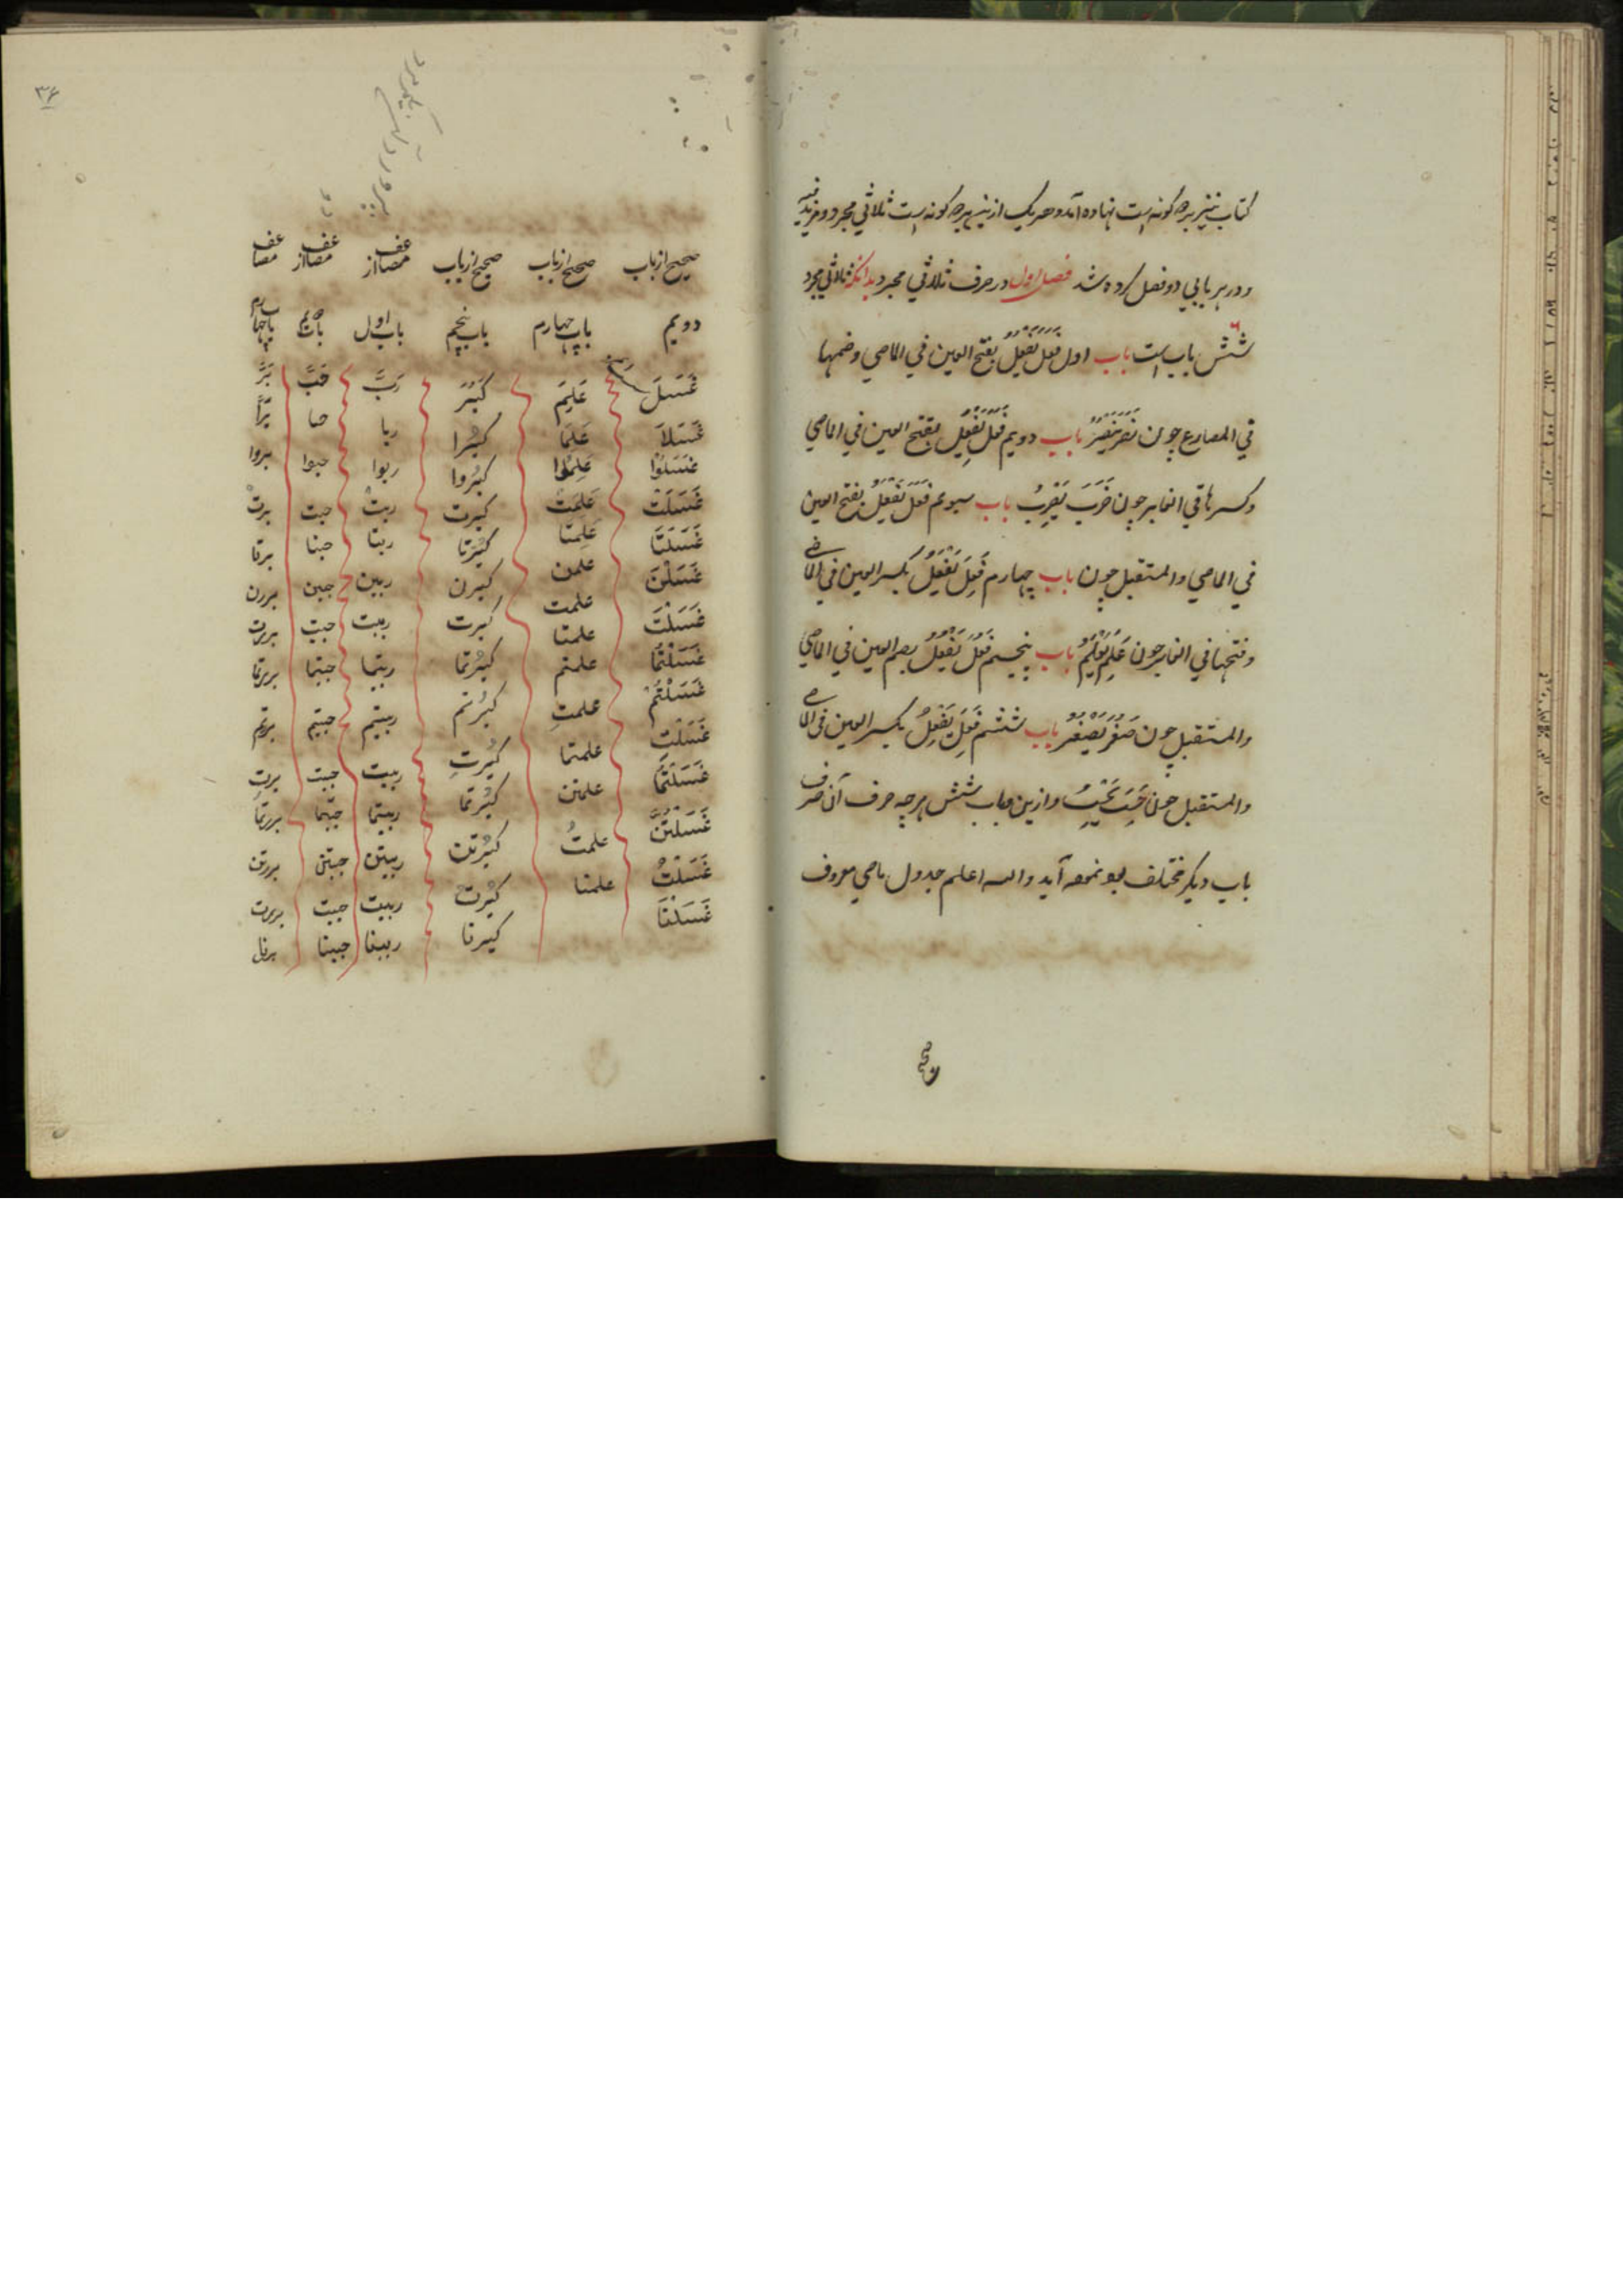 کتاب نیز برچه کونه است نهاده آمد و هر یک ازین برچه کونه است ثلاثي مجرد و مزید فیه
و در هر بابي دو فصل کرده شد فصل اول در صرف ثلاثي مجرد بدانکه ثلاثي مجرد
شش باب است باب اول فَعَلَ يَفْعُلُ بفتح العين في الماضي وضمها
في المضارع چون نَصَرَ يَنْصُرُ باب دويم فَعَلَ يَفْعِلُ بفتح العين في الماضي
وکسرها في الغابر چون ضَرَبَ يَضْرِبُ باب سيوم فَعَلَ يَفْعَلُ بفتح العين
في الماضي والمستقبل چون باب چهارم فَعِلَ يَفْعَلُ بکسر العين في الماضي
وفتحها في الغابر چون عَلِمَ يَعْلَمُ باب پنجم فَعُلَ يَفْعُلُ بضم العين في الماضي
والمستقبل چون صَغُرَ يَصْغُرُ باب ششم فَعِلَ يَفْعِلُ بکسر العين في الماضي
والمستقبل چون حَسِبَ يَحْسِبُ وازين باب شش هرچه صرف آن صرف
باب ديکر مختلف آيد والله اعلم جدول ماضي معروف
صحیح
۳۶
صحیح ازباب صحیح ازباب صحیح ازباب مضاعف از مضاعف از مضاعف
دويم باب چهارم باب پنجم باب اول باب باب چهارم
غَسَلَ عَلِمَ کَبُرَ رَبَّ حَبَّ بَرَّ
غَسَلَا عَلِمَا کبُرا ربا حبا بَرَّا
غَسَلُوْا عَلِمُوا کبُروا ربوا حبوا بروا
غَسَلَتْ عَلِمَتْ کبرت ربتْ حبت برتْ
غَسَلَتَا عَلِمتا کبُرتا ربتا حبتا برتا
غَسَلْنَ علمن کبرن ربین حببن بررن
غَسَلْتَ علمت کبرت رببت حببت بررت
غَسَلْتُمَا علمتما کبُرتما رببتما حببتما بررتما
غَسَلْتُمْ علمتم کبُرتم رببتم حببتم بررتم
غَسَلْتِ علمتِ کبُرتِ رببت حببت بررت
غَسَلْتُمَا علمتما کبُرتما رببتما حببتما بررتما
غَسَلْتُنَّ علمتن کبُرتن رببتن حببتن بررتن
غَسَلْتُ علمتُ کبُرتُ رببت حببت بررت
غَسَلْنَا علمنا کبرنا رببنا حببنا